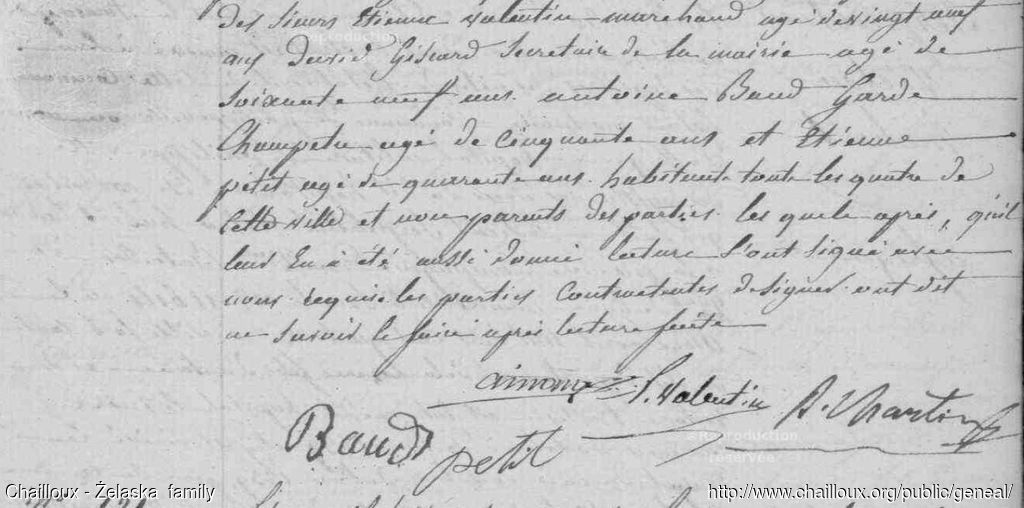 des sieurs Etienne valentin marchand agé de vingt neuf
ans David secretaire de la mairie agé de
soixante neuf ans antoine Baud Garde
Champetre agé de cinquante ans et Etienne
petit agé de quarante ans habitants toute les quatre de
Cette ville et non parents des parties les quels après, qu'il
leur En a été aussi donné lecture l'ont signé avec
nous requise les parties Contractentes de signer ont dit
ne savoir le faire après lecture faite
E. valentin
Baud petit
© Reproduction
réservée
Chailloux - Żelaska family
http://www.chailloux.org/public/geneal/